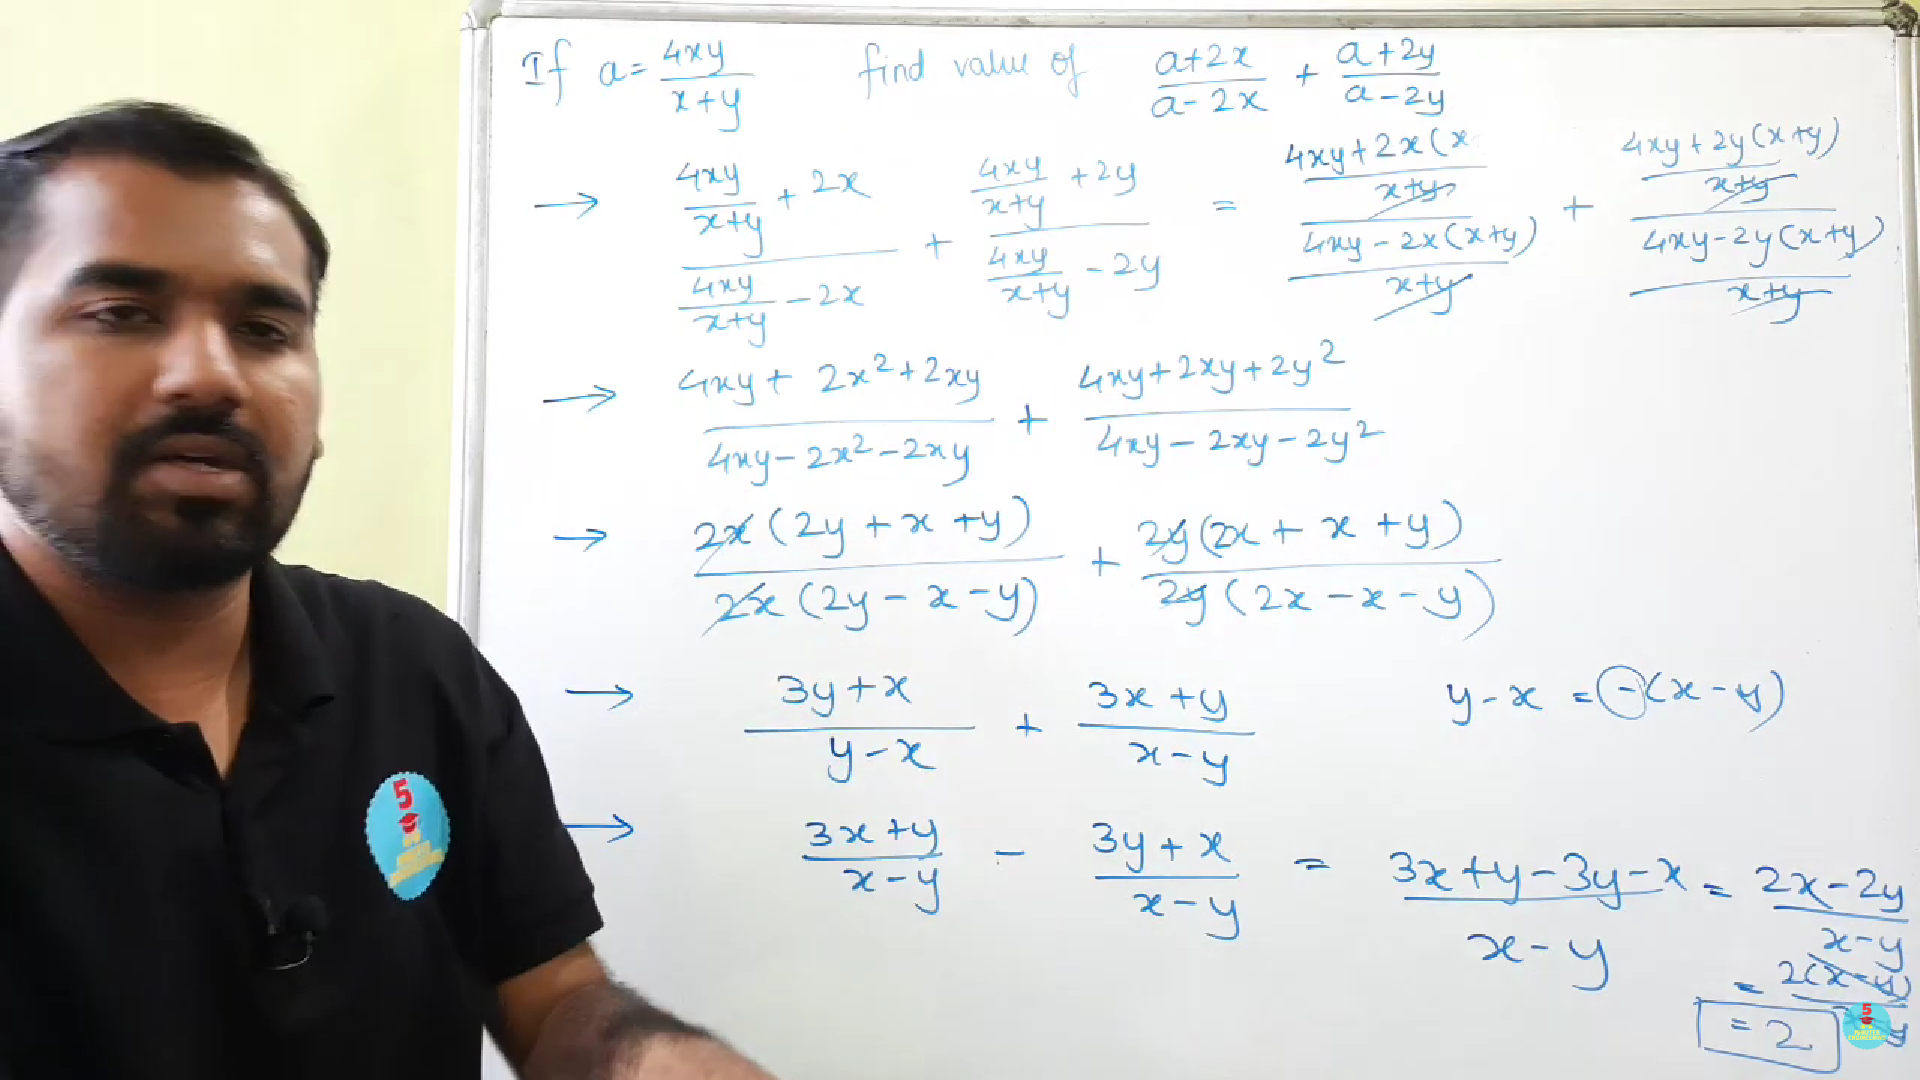 If a = 4xy/x+y find value of a+2x/a-2x + a+2y/a-2y
→ 4xy/x+y + 2x / 4xy/x+y - 2x + 4xy/x+y + 2y / 4xy/x+y - 2y = 4xy+2x(x / x+y / 4xy-2x(x+y) / x+y + 4xy+2y(x+y) / x+y / 4xy-2y(x+y) / x+y
→ 4xy+ 2x²+2xy / 4xy-2x²-2xy + 4xy+2xy+2y² / 4xy-2xy-2y²
→ 2x(2y+x+y) / 2x(2y-x-y) + 2y(2x+x+y) / 2y(2x-x-y)
→ 3y+x / y-x + 3x+y / x-y y-x = -(x-y)
→ 3x+y / x-y - 3y+x / x-y = 3x+y-3y-x / x-y = 2x-2y / x-y
= 2(x-y)
= 2
5
5